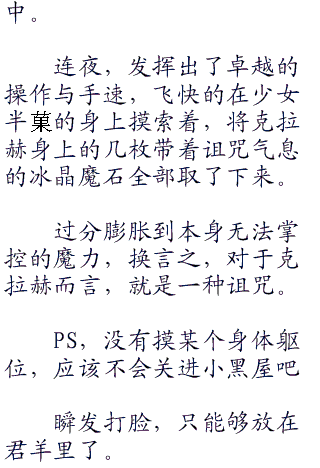 中。
连夜，发挥出了卓越的
操作与手速，飞快的在少女
半菓的身上摸索着，将克拉
赫身上的几枚带着诅咒气息
的冰晶魔石全部取了下来。
过分膨胀到本身无法掌
控的魔力，换言之，对于克
拉赫而言，就是一种诅咒。
PS，没有摸某个身体躯
位，应该不会关进小黑屋吧
瞬发打脸，只能够放在
君羊里了。